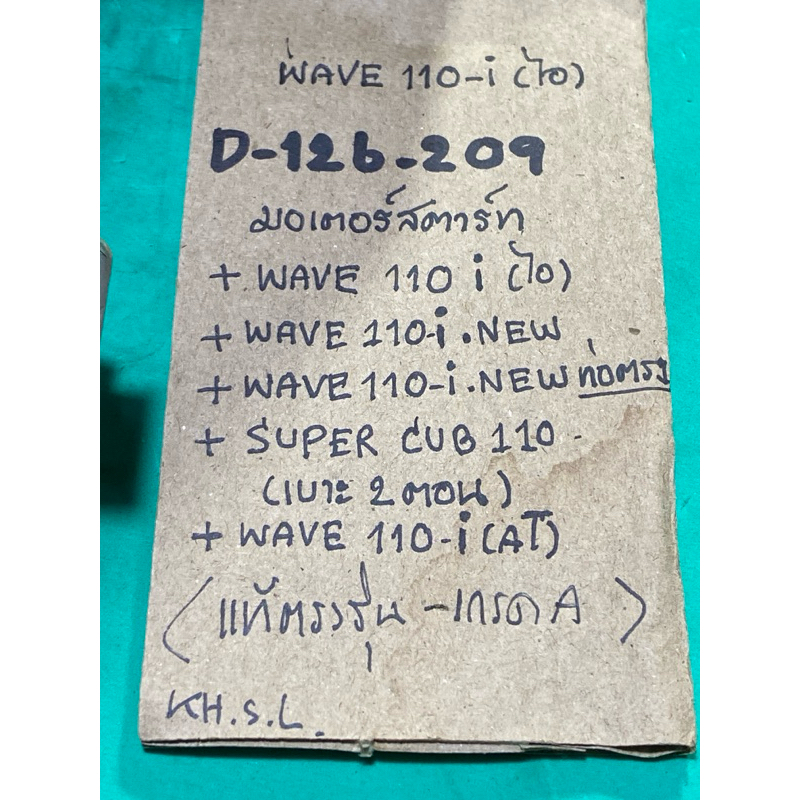 WAVE 110-i (ไอ)
D-126-209
มอเตอร์สตาร์ท
+ WAVE 110 i (ไอ)
+ WAVE 110-i.NEW
+ WAVE 110-i.NEW ท่อตรง
+ SUPER CUB 110 -
(เบาะ 2 ตอน)
+ WAVE 110-i (AT)
(แท้ตรงรุ่น - เกรด A)
KH.S.L.